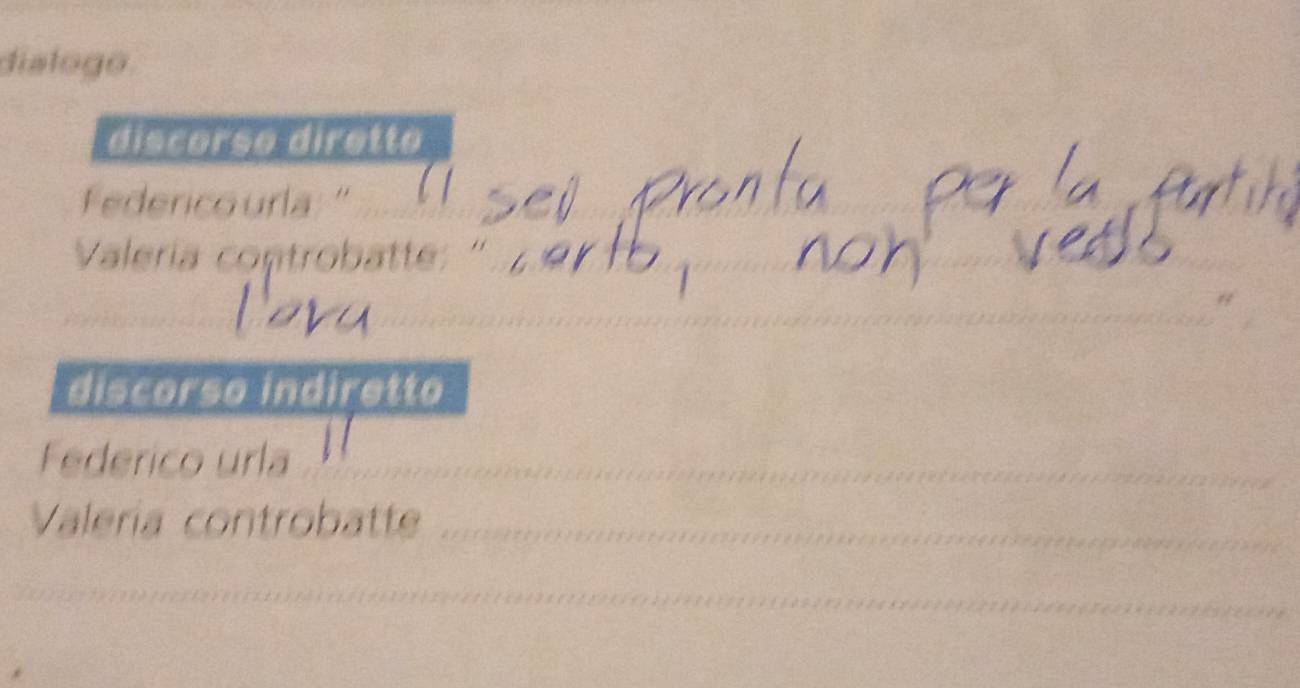 dialogo.
discorso diretto
Federico urla: " " sei pronta per la partita
Valeria controbatte: " certo, non vedo
l'ora ".
discorso indiretto
Federico urla "
Valeria controbatte